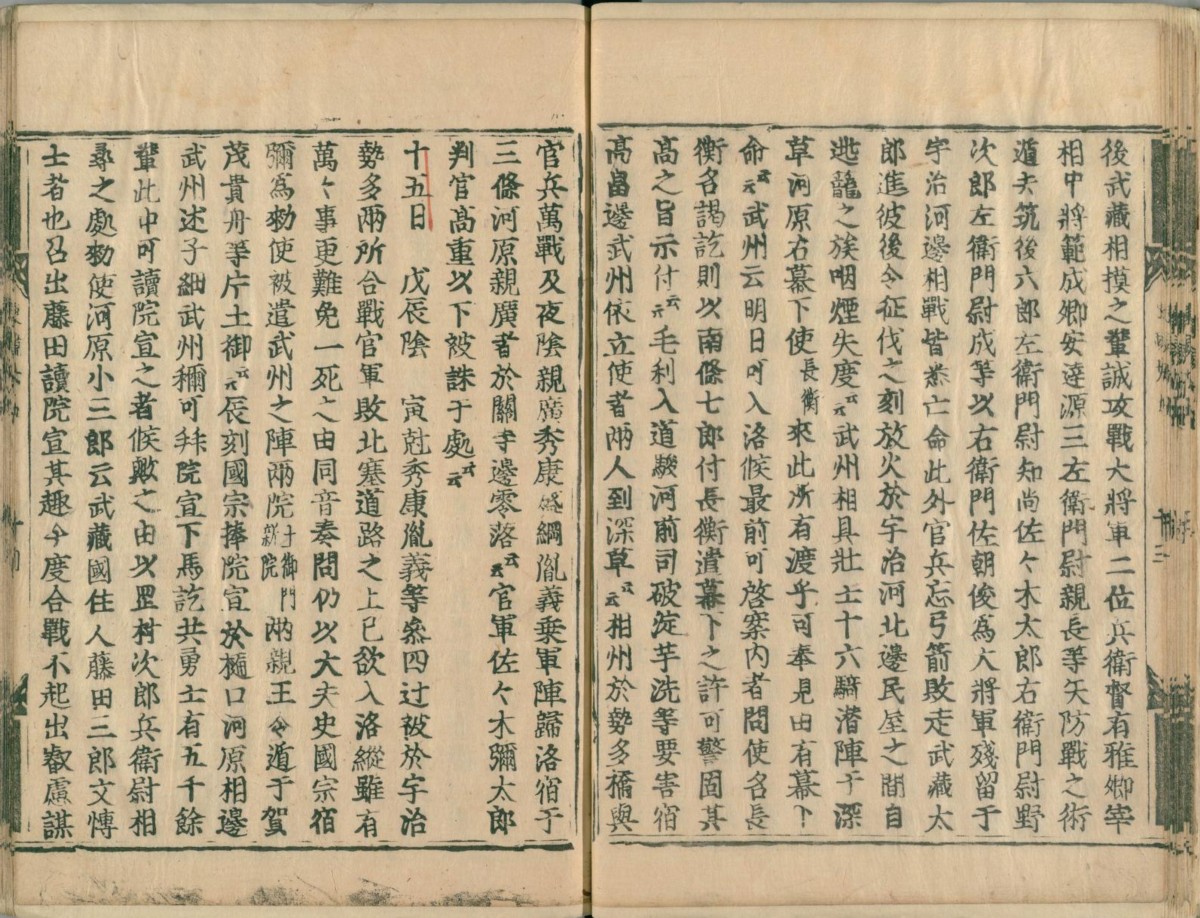 後武藏相摸之輩誠攻戰大將軍二位兵衛督有雅卿宰
相中將範成卿安達源三左衛門尉親長等矢防戰之術
遁去筑後六郎左衛門尉知尚佐々木太郎右衛門尉野
次郎左衛門尉成等以右衛門佐朝俊為大將軍殘留于
宇治河邊相戰皆悉亡命此外官兵忘弓箭敗走武藏太
郎進彼後令征伐之刻放火於宇治河北邊民屋之間自
迯籠之族咽煙失度云云武州相具壯士十六騎潜陣于深
草河原右幕下使長衡來此所有渡乎可奉見由有幕下
命云云武州云明日可入洛候最前可啓案内者問使名長
衡名謁訖則以南條七郎付長衡遣幕下之許可警固其
髙之旨示付云云毛利入道駿河前司破淀芋洗等要害宿
高畠邊武州依立使者兩人到深草云云相州於勢多橋與
官兵萬戰及夜陰親廣秀康盛綱胤義棄軍陣歸洛宿于
三條河原親廣者於關寺邊零落云云官軍佐々木彌太郎
判官高重以下被誅于處云云
十五日 戊辰陰 寅尅秀康胤義等參四辻被於宇治
勢多兩所合戰官軍敗北塞道路之上已欲入洛縱雖有
萬々事更難免一死之由同音奏問仍以大夫史國宗宿
彌為勅使被遣武州之陣兩院土御門新院兩親王令遁于賀
茂貴舟等片土御云云辰刻國宗捧院宣於樋口河原相邊
武州述子細武州稱可拜院宣下馬訖共勇士有五千餘
輩此中可讀院宣之者候歟之由以罡村次郎兵衛尉相
尋之處勅使河原小三郎云武藏國住人藤田三郎文慱
士者也召出藤田讀院宣其趣今度合戰不起出叡慮謀